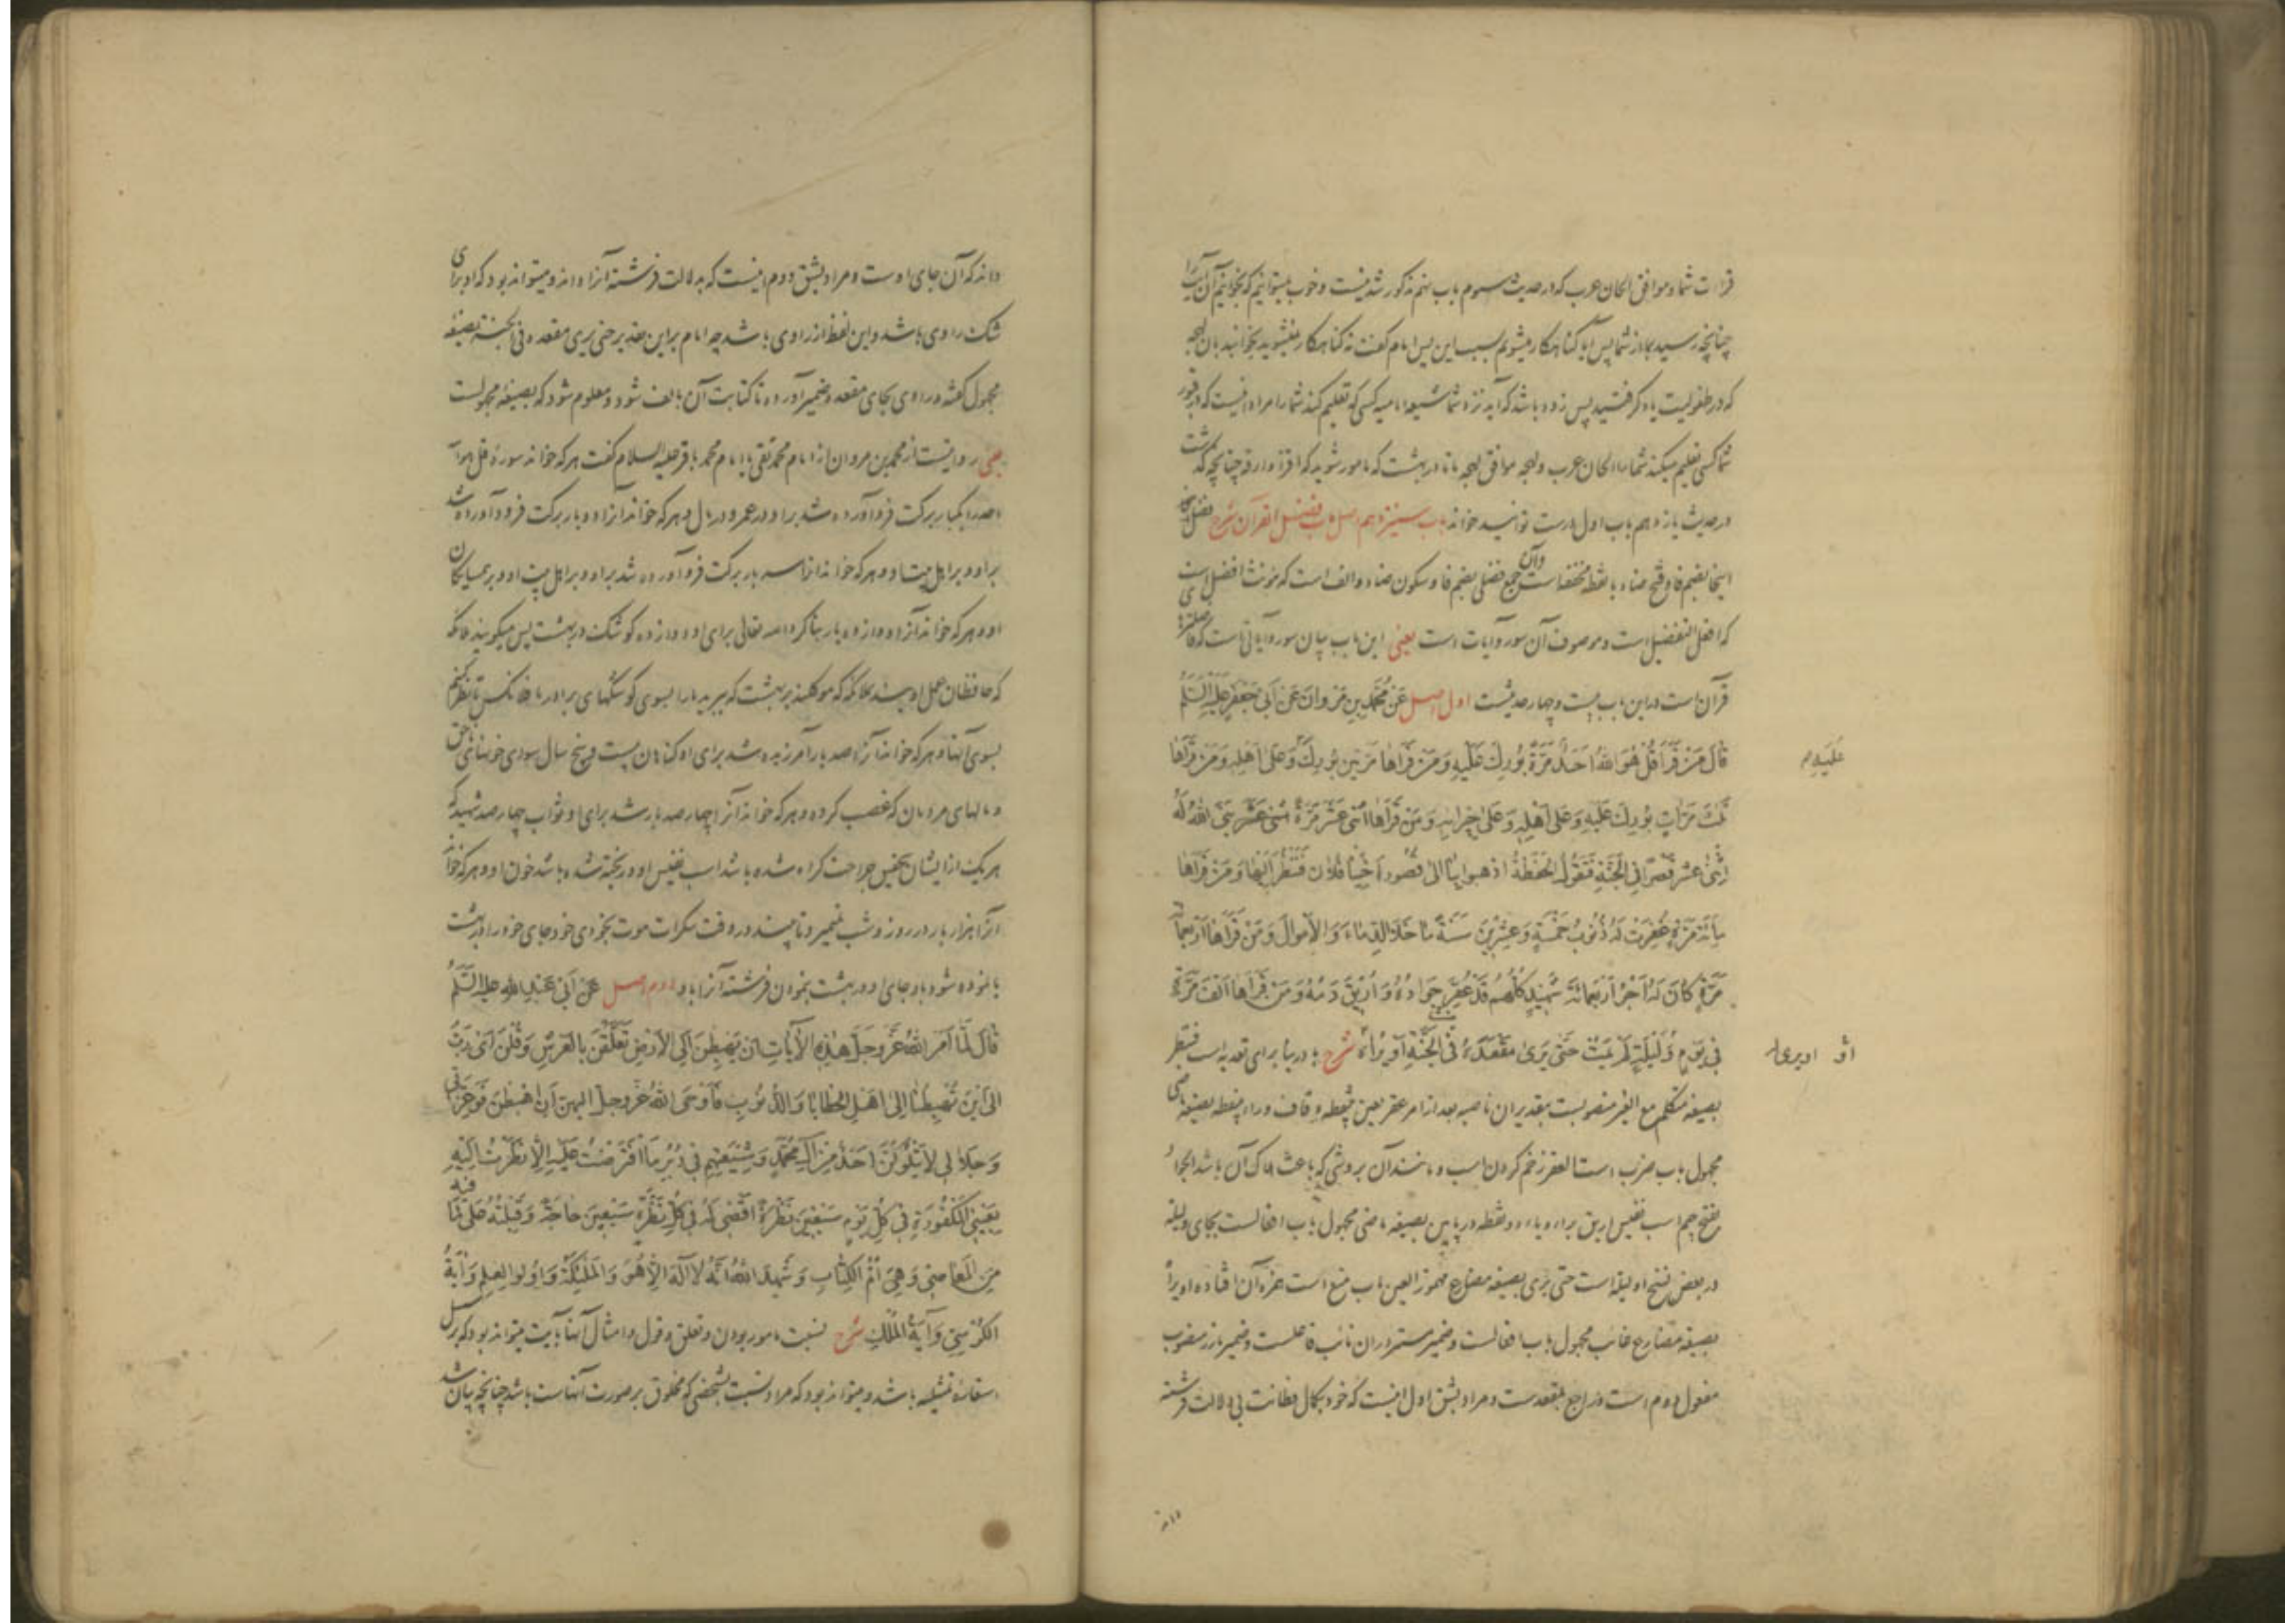 قراءت شما و موافق الحان عرب که در حدیث سوم باب نهم مذکور شد نیست و خوب نمیتوانیم که بخوانیم آن آیت را
چنانچه رسید بما از شما پس آیا گناهکار میشویم بسبب این پس امام گفت نه گناهکار نمیشوید بخوانید بآن لهجه
که در طفولیت یاد گرفتید پس زود باشد که آید نزد شما شیعه امامیه کسی که تعلیم کند شما را مراد اینست که در قبور
شما کسی تعلیم میکند شما را الحان عرب و لهجه موافق لهجه ما تا در بهشت که مامور شوید که اقرأ وارقه چنانچه گذشت
در حدیث یازدهم باب اول درست توانید خواند باب سیزدهم اصل باب فضل القرآن شرح فضل
اینجا بضم فا و فتح ضاد با نقطه مخففه است و آن جمع فضلی بضم فا و سکون ضاد و الف است که مونث افضل است
که افعل التفضیل است و موصوف آن سور و آیات است یعنی این باب بیان سور و آیاتی است که
قرآن است در این باب بیست و چهار حدیثست اول اصل عَنْ مُحَمَّدِ بْنِ مَرْوانَ عَنْ أَبِي جَعْفَرٍ عَلَيْهِ السَّلَمُ
قالَ مَنْ قَرَأَ قُلْ هُوَ اللهُ أَحَدٌ مَرَّةً بُورِكَ عَلَيْهِ وَمَنْ قَرَأَها مَرَّتَيْنِ بُورِكَ وَعَلى أَهْلِهِ وَمَنْ قَرَأَها
عَلَيْهِ وَ م
ثَلثَ مَرّاتٍ بُورِكَ عَلَيْهِ وَعَلى أَهْلِهِ وَعَلى جِيرانِهِ وَمَنْ قَرَأَها اثْنَيْ عَشَرَ مَرَّةً بَنَى اللهُ لَهُ
اثْنَيْ عَشَرَ قَصْرًا فِي الْجَنَّةِ فَتَقُولُ الْحَفَظَةُ اذْهَبُوا بِنا إِلى قُصُورِ أَخِينا فُلانٍ فَنَنْظُرَ إِلَيْها وَمَنْ قَرَأَها
مِائَةَ مَرَّةٍ غُفِرَتْ لَهُ ذُنُوبُ خَمْسَةٍ وَعِشْرِينَ سَنَةً ما خَلا الدِّماءَ وَالْأَمْوالَ وَمَنْ قَرَأَها أَرْبَعَمِائَةِ
مَرَّةٍ كانَ لَهُ أَجْرُ أَرْبَعِمِائَةِ شَهِيدٍ كُلُّهُمْ قَدْ عُقِرَ جَوادُهُ وَأُرِيقَ دَمُهُ وَمَنْ قَرَأَها أَلْفَ مَرَّةٍ
فِي يَوْمٍ وَلَيْلَةٍ لَمْ يَمُتْ حَتّى يَرى مَقْعَدَهُ فِي الْجَنَّةِ أَوْ يُرأهُ شرح با در بنا برای تعدیه است فننظر
أو او یری له
بصیغه متکلم مع الغیر منصوبست بتقدیر ان ناصبه بعد از امر عقر بعین بینقطه و قاف و راء بینقطه بصیغه ماضی
مجهول باب ضرب است العقر زخم کردن اسب و مانند آن بروشی که باعث هلاک آن باشد الجواد
بفتح جیم اسب نفیس اریق براء و یاء دو نقطه در پایین بصیغه ماضی مجهول باب افعالست بجای ولیلة
در بعض نسخ اولیلة است حتی یری بصیغه مضارع مهموز العین باب منع است همزه آن افتاده او یرأ
بصیغه مضارع غائب مجهول باب افعالست و ضمیر مستتر در آن نائب فاعلست و ضمیر بارز منصوب
مفعول دوم است و راجع بمقعدست و مراد بشق اول اینست که خود بکمال فطانت بی دلالت فرشته
داند
داند که آن جای اوست و مراد بشق دوم اینست که بدلالت فرشته آنرا داند و میتواند بود که او برای
شک راوی باشد و این لفظ از راوی باشد چه امام بر این تقدیر حتی یری مقعده فی الجنة بصیغه
مجهول گفته و راوی بجای مقعده ضمیر آورده تا کتابت آن بالف شود و معلوم شود که بصیغه مجهولست
یعنی روایتست از محمد بن مروان از امام محمد تقی یا امام محمد باقر علیه السلام گفت هر که خواند سوره قل هو الله
احد را یکبار برکت فرود آورده شد بر او در عمر و در مال و هر که خواند آنرا دو بار برکت فرود آورده شد
بر او و بر اهل بیت او و هر که خواند آنرا سه بار برکت فرود آورده شد بر او و بر اهل بیت او و بر همسایگان
او و هر که خواند آنرا دوازده بار بنا کرد الله تعالی برای او دوازده کوشک در بهشت پس میگویند ملائکه
که حافظان عمل اویند بملائکه که موکلند بر بهشت که ببرید ما را بسوی کوشکهای برادر ما فلان کس تا نظر کنیم
بسوی آنها و هر که خواند آنرا صد بار آمرزیده شد برای او گناهان بیست و پنج سال سوای خونهای ناحق
و مالهای مردمان که غصب کرده و هر که خواند آنرا چهارصد بار شد برای او ثواب چهارصد شهید که
هر یک از ایشان بتحقیق جراحت کرده شده باشد اسب نفیس او و ریخته شده باشد خون او و هر که خواند
آنرا هزار بار در روز و شب نمیرد تا بیند در وقت سکرات موت بخودی خود جای خود را در بهشت
یا نموده شود باو جای او در بهشت بنمودن فرشته آنرا باو دوم اصل عَنْ أَبِي عَبْدِ اللهِ عَلَيْهِ السَّلَمُ
قالَ لَمّا أَمَرَ اللهُ عَزَّ وَجَلَّ هذِهِ الْآياتِ أَنْ يَهْبِطْنَ إِلَى الْأَرْضِ تَعَلَّقْنَ بِالْعَرْشِ وَقُلْنَ أَيْ رَبِّ
إِلى أَيْنَ تُهْبِطُنا إِلى أَهْلِ الْخَطايا وَالذُّنُوبِ فَأَوْحَى اللهُ عَزَّ وَجَلَّ إِلَيْهِنَّ أَنِ اهْبِطْنَ فَوَعِزَّتِي
وَجَلالِي لا يَتْلُوكُنَّ أَحَدٌ مِنْ آلِ مُحَمَّدٍ وَشِيعَتِهِمْ فِي دُبُرِ مَا افْتَرَضْتُ عَلَيْهِ إِلّا نَظَرْتُ إِلَيْهِ
بِعَيْنِي الْمَكْنُونَةِ فِي كُلِّ يَوْمٍ سَبْعِينَ نَظْرَةً أَقْضِي لَهُ فِي كُلِّ نَظْرَةٍ سَبْعِينَ حاجَةً وَقَبِلْتُهُ عَلى ما فِيهِ
مِنَ الْمَعاصِي وَهِيَ أُمُّ الْكِتابِ وَشَهِدَ اللهُ أَنَّهُ لا إِلهَ إِلّا هُوَ وَالْمَلئِكَةُ وَأُولُوا الْعِلْمِ وَآيَةُ
الْكُرْسِيِّ وَآيَةُ الْمُلْكِ شرح نسبت مامور بودن و تعلق و قول و امثال آنها بآیت میتواند بود که بر سبیل
استعاره تمثیلیه باشد و میتواند بود که مراد نسبت بشخصی که مخلوق بر صورت آنهاست باشد چنانچه بیان شد